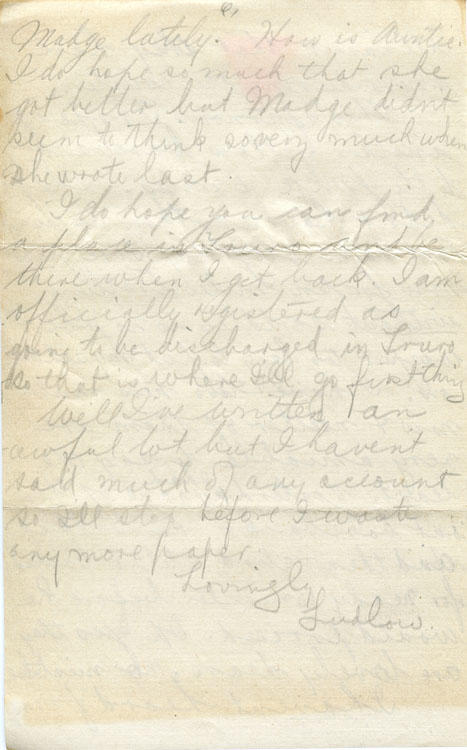 6,
Madge lately. How is Auntie.
I do hope so much that she
got better but Madge didn't
seem to think so very much when
she wrote last.
I do hope you can find
a place in Truro and be
there when I get back. I am
officially registered as
going to be discharged in Truro
so that is where I'll go first thing
Well I've written an
awful lot but I haven't
said much of any account
so I'll stop before I waste
any more paper
Lovingly
Ludlow.